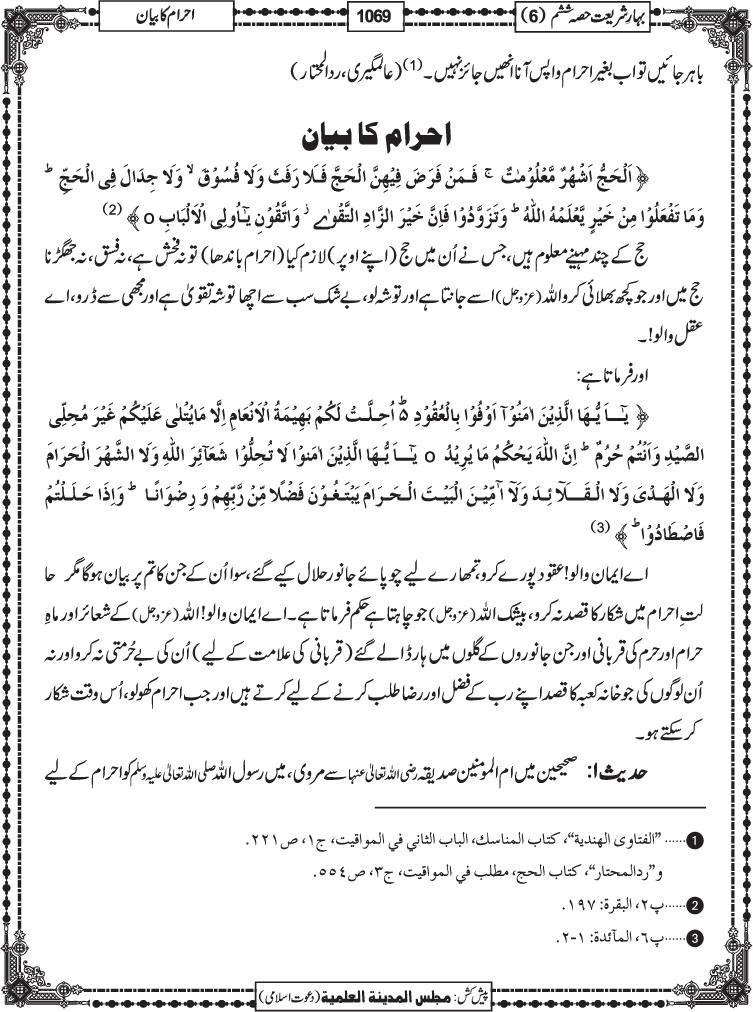 بہار شریعت حصہ ششم (6)
1069
احرام کا بیان
باہر جائیں تو اب بغیر احرام واپس آنا انھیں جائز نہیں۔ (1) (عالمگیری، ردالمحتار)
احرام کا بیان
﴿ اَلْحَجُّ اَشْهُرٌ مَّعْلُوْمٰتٌ ۚ فَمَنْ فَرَضَ فِیْهِنَّ الْحَجَّ فَلَا رَفَثَ وَلَا فُسُوْقَ ۙ وَلَا جِدَالَ فِی الْحَجِّ ؕ
وَمَا تَفْعَلُوْا مِنْ خَیْرٍ یَّعْلَمْهُ اللّٰهُ ؕ وَتَزَوَّدُوْا فَاِنَّ خَیْرَ الزَّادِ التَّقْوٰی ؗ وَاتَّقُوْنِ یٰۤاُولِی الْاَلْبَابِ o ﴾ (2)
حج کے چند مہینے معلوم ہیں، جس نے اُن میں حج (اپنے اوپر) لازم کیا (احرام باندھا) تو نہ فحش ہے، نہ فسق، نہ جھگڑنا
حج میں اور جو کچھ بھلائی کرو اللہ (عزوجل) اسے جانتا ہے اور توشہ لو، بے شک سب سے اچھا توشہ تقویٰ ہے اور مجھی سے ڈرو، اے
عقل والو!۔
اور فرماتا ہے:
﴿ یٰۤاَیُّهَا الَّذِیْنَ اٰمَنُوْۤا اَوْفُوْا بِالْعُقُوْدِ ؕ۬ اُحِلَّتْ لَكُمْ بَهِیْمَةُ الْاَنْعَامِ اِلَّا مَا یُتْلٰی عَلَیْكُمْ غَیْرَ مُحِلِّی
الصَّیْدِ وَاَنْتُمْ حُرُمٌ ؕ اِنَّ اللّٰهَ یَحْكُمُ مَا یُرِیْدُ o یٰۤاَیُّهَا الَّذِیْنَ اٰمَنُوْا لَا تُحِلُّوْا شَعَآئِرَ اللّٰهِ وَلَا الشَّهْرَ الْحَرَامَ
وَلَا الْهَدْیَ وَلَا الْقَلَآئِدَ وَلَاۤ آٰمِّیْنَ الْبَیْتَ الْحَرَامَ یَبْتَغُوْنَ فَضْلًا مِّنْ رَّبِّهِمْ وَرِضْوَانًا ؕ وَاِذَا حَلَلْتُمْ
فَاصْطَادُوْا ؕ ﴾ (3)
اے ایمان والو! عقود پورے کرو، تمھارے لیے چوپائے جانور حلال کیے گئے، سوا اُن کے جن کا تم پر بیان ہوگا مگر حا
لتِ احرام میں شکار کا قصد نہ کرو، بیشک اللہ (عزوجل) جو چاہتا ہے حکم فرماتا ہے۔ اے ایمان والو! اللہ (عزوجل) کے شعائر اور ماہِ
حرام اور حرم کی قربانی اور جن جانوروں کے گلوں میں ہار ڈالے گئے (قربانی کی علامت کے لیے) اُن کی بے حُرمتی نہ کرو اور نہ
اُن لوگوں کی جو خانہ کعبہ کا قصد اپنے رب کے فضل اور رضا طلب کرنے کے لیے کرتے ہیں اور جب احرام کھولو، اُس وقت شکار
کر سکتے ہو۔
حدیث ۱: صحیحین میں ام المومنین صدیقہ رضی اللہ تعالیٰ عنہا سے مروی، میں رسول اللہ صلی اللہ تعالیٰ علیہ وسلم کو احرام کے لیے
1 ...... ”الفتاوی الهندیة“، کتاب المناسك، الباب الثاني في المواقیت، ج۱، ص۲۲۱.
و”ردالمحتار“، کتاب الحج، مطلب في المواقیت، ج۳، ص۵۵٤.
2 ......پ۲، البقرة: ۱۹۷.
3 ......پ٦، المآئدة: ۱-۲.
پیش کش: مجلس المدینة العلمیة (دعوت اسلامی)